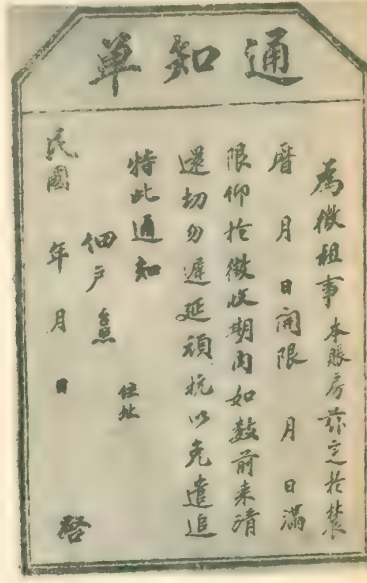 通知单
為徵租事本賬房茲定扵農
曆 月 日開限 月 日滿
限仰扵徵收期內如數前來清
還切勿遲延頑抗以免遣追
特此通知
佃户 住址
民國 年 月 日 啓